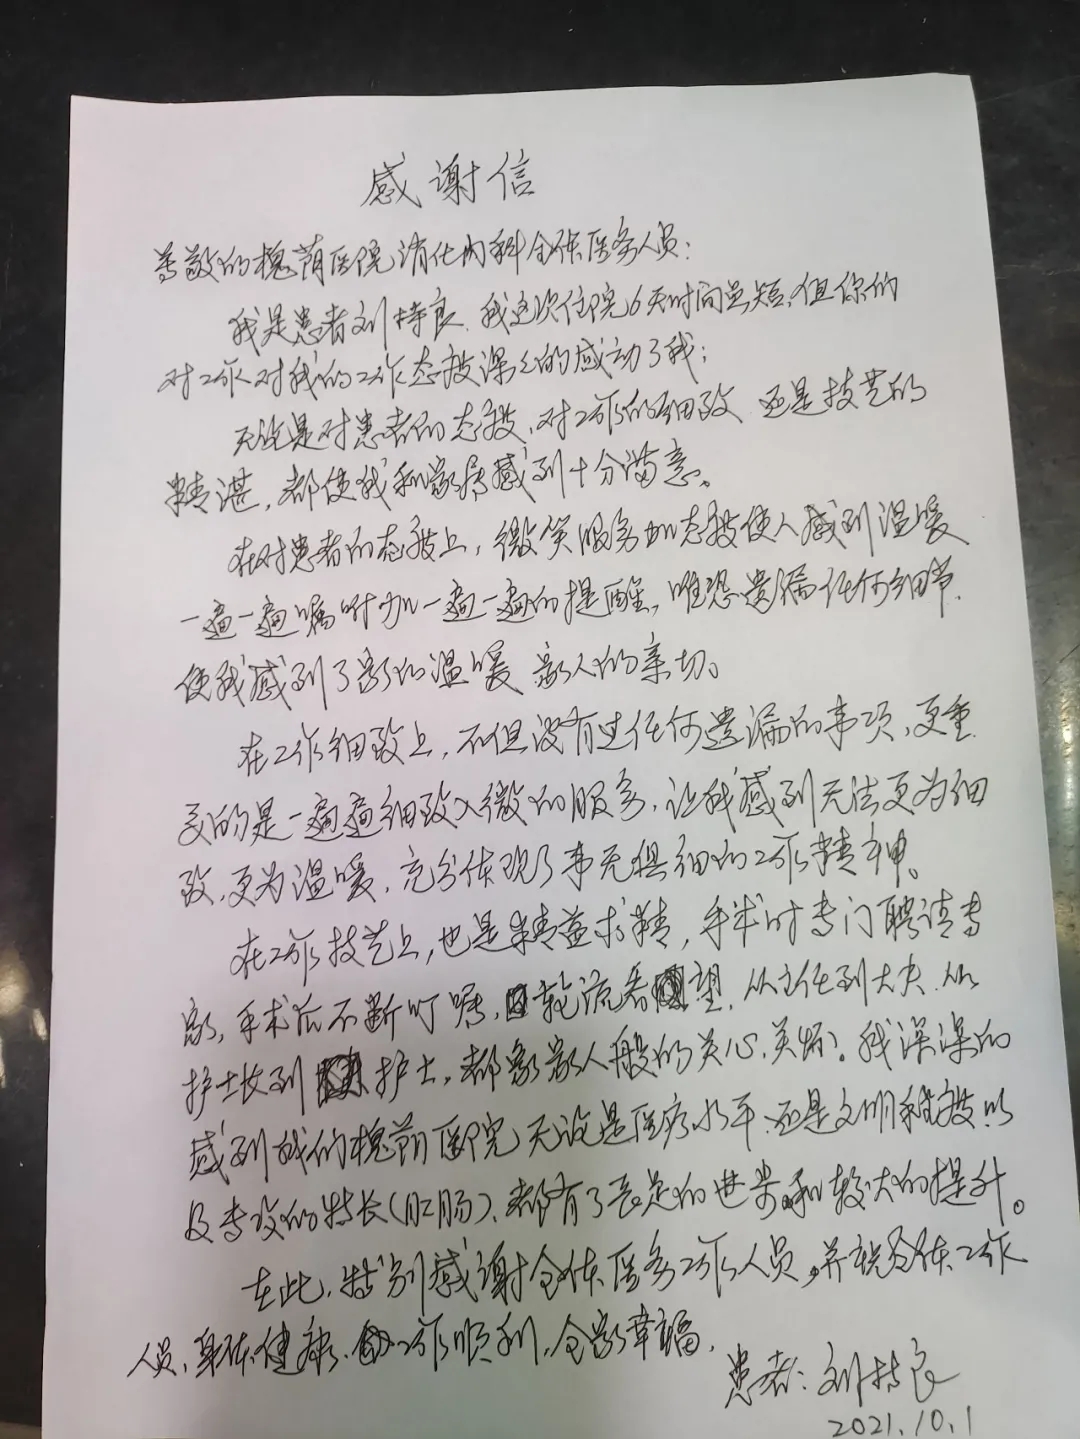 感谢信
尊敬的槐荫医院消化内科全体医务人员：
我是患者刘持良、我这次住院6天时间虽短、但你们
对工作对我的工作态度深深的感动了我：
无论是对患者的态度、对工作的细致 还是技艺的
精湛，都使我和家属感到十分满意。
在对患者的态度上，微笑服务的态度使人感到温暖
一遍一遍嘱咐 一遍一遍的提醒，唯恐遗漏任何细节、
使我感到了家的温暖 家人的亲切。
在工作细致上，不但没有过任何遗漏的事项、更重
要的是一遍遍细致入微的服务，让我感到无法更为细
致，更为温暖，充分体现了事无俱细的工作精神。
在工作技艺上，也是精益求精，手术时专门聘请专
家，手术后不断叮嘱，轮流看望，从主任到大夫、从
护士长到护士，都象家人般的关心、关怀。我深深的
感到我们槐荫医院无论是医疗水平、还是文明程度以
及专攻的特长（肛肠）、都有了长足的进步和较大的提升。
在此，特别感谢全体医务工作人员，并祝全体工作
人员、身体健康、工作顺利，合家幸福，
患者：刘持良
2021.10.1